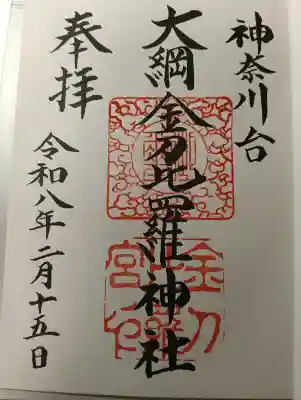 神奈川台
大綱金刀比羅神社
奉拝
令和八年二月十五日